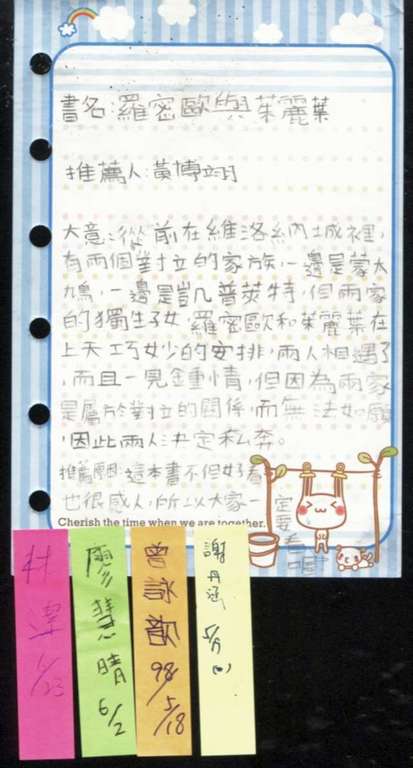 書名:羅密歐與茱麗葉
推薦人:黃博翊
大意:從前在維洛納城裡,
有兩個對立的家族,一邊是蒙太
鳩,一邊是凱普萊特,但兩家
的獨生子女,羅密歐和茱麗葉在
上天巧妙的安排,兩人相遇了
,而且一見鍾情,但因為兩家
是屬於對立的關係,而無法如願
,因此兩人決定私奔。
推薦原因:這本書不但好看
也很感人,所以大家一
定要看
Cherish the time when we are together.
林
1/23
廖慧晴
6/2
曾詠歆
98/5/18
謝丹涵